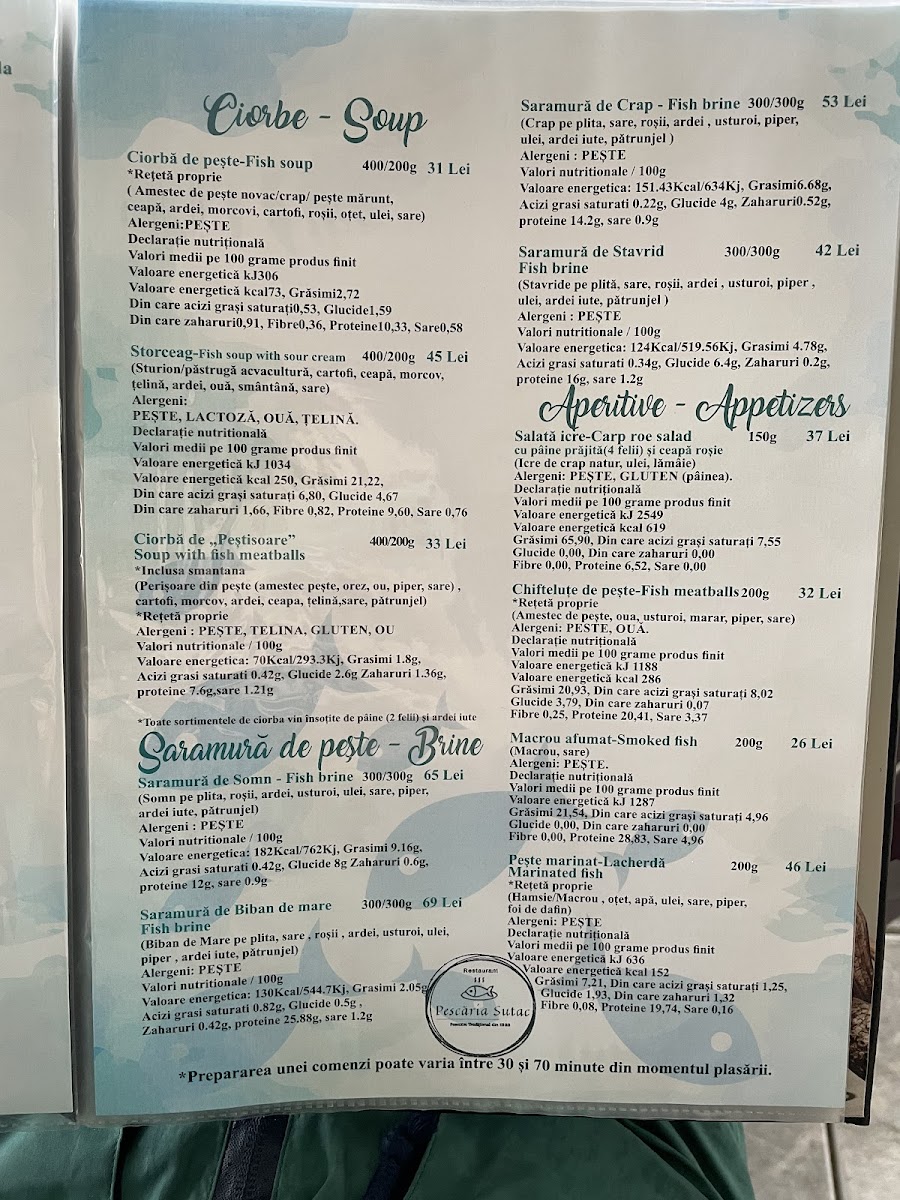 la
Ciorbe - Soup
Ciorbă de pește-Fish soup 400/200g 31 Lei
*Rețetă proprie
( Amestec de pește novac/crap/ pește mărunt,
ceapă, ardei, morcovi, cartofi, roșii, oțet, ulei, sare)
Alergeni:PEȘTE
Declarație nutrițională
Valori medii pe 100 grame produs finit
Valoare energetică kJ306
Valoare energetică kcal73, Grăsimi2,72
Din care acizi grași saturați0,53, Glucide1,59
Din care zaharuri0,91, Fibre0,36, Proteine10,33, Sare0,58
Storceag-Fish soup with sour cream 400/200g 45 Lei
(Sturion/păstrugă acvacultură, cartofi, ceapă, morcov,
țelină, ardei, ouă, smântână, sare)
Alergeni:
PEȘTE, LACTOZĂ, OUĂ, ȚELINĂ.
Declarație nutritională
Valori medii pe 100 grame produs finit
Valoare energetică kJ 1034
Valoare energetică kcal 250, Grăsimi 21,22,
Din care acizi grași saturați 6,80, Glucide 4,67
Din care zaharuri 1,66, Fibre 0,82, Proteine 9,60, Sare 0,76
Ciorbă de „Peștisoare” 400/200g 33 Lei
Soup with fish meatballs
*Inclusa smantana
(Perișoare din pește (amestec pește, orez, ou, piper, sare) ,
cartofi, morcov, ardei, ceapa, țelină,sare, pătrunjel)
*Rețetă proprie
Alergeni : PEȘTE, TELINA, GLUTEN, OU
Valori nutritionale / 100g
Valoare energetica: 70Kcal/293.3Kj, Grasimi 1.8g,
Acizi grasi saturati 0.42g, Glucide 2.6g Zaharuri 1.36g,
proteine 7.6g,sare 1.21g
*Toate sortimentele de ciorba vin însoțite de pâine (2 felii) și ardei iute
Saramură de pește - Brine
Saramură de Somn - Fish brine 300/300g 65 Lei
(Somn pe plita, roșii, ardei, usturoi, ulei, sare, piper,
ardei iute, pătrunjel)
Alergeni : PEȘTE
Valori nutritionale / 100g
Valoare energetica: 182Kcal/762Kj, Grasimi 9.16g,
Acizi grasi saturati 0.42g, Glucide 8g Zaharuri 0.6g,
proteine 12g, sare 0.9g
Saramură de Biban de mare 300/300g 69 Lei
Fish brine
(Biban de Mare pe plita, sare , roșii , ardei, usturoi, ulei,
piper , ardei iute, pătrunjel)
Alergeni : PEȘTE
Valori nutritionale / 100g
Valoare energetica: 130Kcal/544.7Kj, Grasimi 2.05g
Acizi grasi saturati 0.82g, Glucide 0.5g ,
Zaharuri 0.42g, proteine 25.88g, sare 1.2g
Saramură de Crap - Fish brine 300/300g 53 Lei
(Crap pe plita, sare, roșii, ardei , usturoi, piper,
ulei, ardei iute, pătrunjel )
Alergeni : PEȘTE
Valori nutritionale / 100g
Valoare energetica: 151.43Kcal/634Kj, Grasimi6.68g,
Acizi grasi saturati 0.22g, Glucide 4g, Zaharuri0.52g,
proteine 14.2g, sare 0.9g
Saramură de Stavrid 300/300g 42 Lei
Fish brine
(Stavride pe plită, sare, roșii, ardei , usturoi, piper ,
ulei, ardei iute, pătrunjel )
Alergeni : PEȘTE
Valori nutritionale / 100g
Valoare energetica: 124Kcal/519.56Kj, Grasimi 4.78g,
Acizi grasi saturati 0.34g, Glucide 6.4g, Zaharuri 0.2g,
proteine 16g, sare 1.2g
Aperitive - Appetizers
Salată icre-Carp roe salad 150g 37 Lei
cu pâine prăjită(4 felii) și ceapă roșie
(Icre de crap natur, ulei, lămâie)
Alergeni: PEȘTE, GLUTEN (pâinea).
Declarație nutrițională
Valori medii pe 100 grame produs finit
Valoare energetică kJ 2549
Valoare energetică kcal 619
Grăsimi 65,90, Din care acizi grași saturați 7,55
Glucide 0,00, Din care zaharuri 0,00
Fibre 0,00, Proteine 6,52, Sare 0,00
Chifteluțe de pește-Fish meatballs 200g 32 Lei
*Rețetă proprie
(Amestec de pește, oua, usturoi, marar, piper, sare)
Alergeni: PESTE, OUĂ.
Declarație nutrițională
Valori medii pe 100 grame produs finit
Valoare energetică kJ 1188
Valoare energetică kcal 286
Grăsimi 20,93, Din care acizi grași saturați 8,02
Glucide 3,79, Din care zaharuri 0,07
Fibre 0,25, Proteine 20,41, Sare 3,37
Macrou afumat-Smoked fish 200g 26 Lei
(Macrou, sare)
Alergeni: PEȘTE.
Declarație nutrițională
Valori medii pe 100 grame produs finit
Valoare energetică kJ 1287
Grăsimi 21,54, Din care acizi grași saturați 4,96
Glucide 0,00, Din care zaharuri 0,00
Fibre 0,00, Proteine 28,83, Sare 4,96
Pește marinat-Lacherdă 200g 46 Lei
Marinated fish
*Rețetă proprie
(Hamsie/Macrou , oțet, apă, ulei, sare, piper,
foi de dafin)
Alergeni: PEȘTE
Declarație nutrițională
Valori medii pe 100 grame produs finit
Valoare energetică kJ 636
Valoare energetică kcal 152
Grăsimi 7,21, Din care acizi grași saturați 1,25,
Glucide 1,93, Din care zaharuri 1,32
Fibre 0,08, Proteine 19,74, Sare 0,16
Restaurant
Pescăria Sutac
*Prepararea unei comenzi poate varia între 30 și 70 minute din momentul plasării.